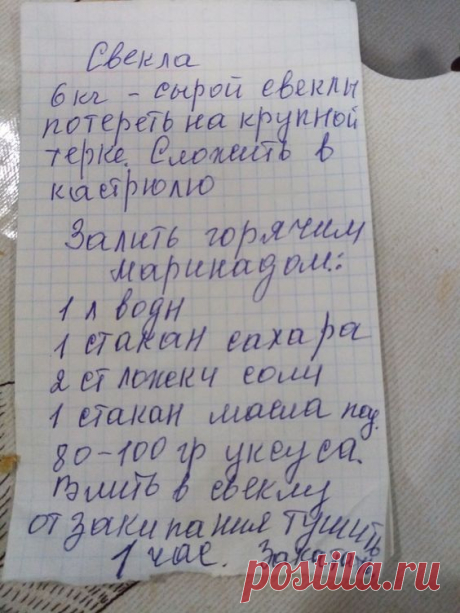 Свекла
6 кг - сырой свеклы
потереть на крупной
терке. Сложить в
кастрюлю
Залить горячим
маринадом:
1 л воды
1 стакан сахара
2 ст ложки соли
1 стакан масла под.
80-100 гр уксуса.
Влить в свеклу
от закипания тушить
1 час.
postila.ru